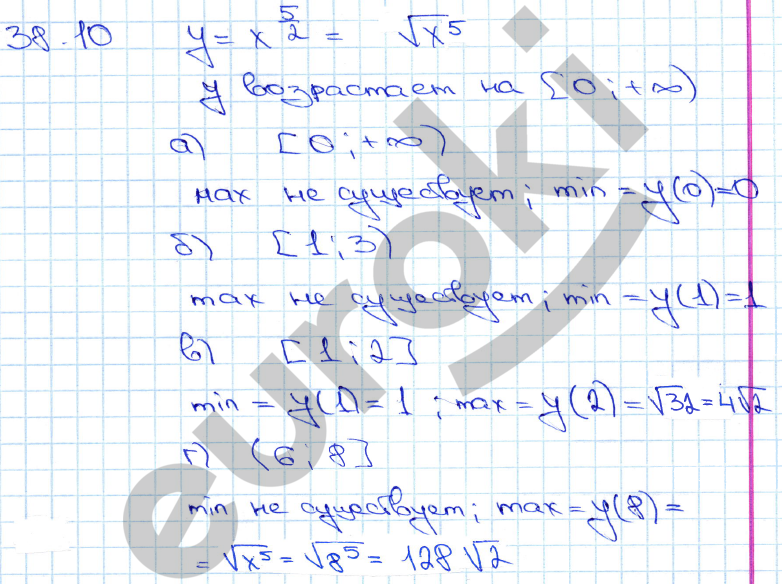 38.10 y = x^(5/2) = √x⁵
y возрастает на [0; +∞)
а) [0; +∞)
мах не существует; min = y(0)=0
б) [1; 3)
max не существует; min = y(1)=1
в) [1; 2]
min = y(1) = 1 ; max = y(2) = √32 = 4√2
г) (6; 8]
min не существует; max = y(8) =
= √x⁵ = √8⁵ = 128√2
euroki